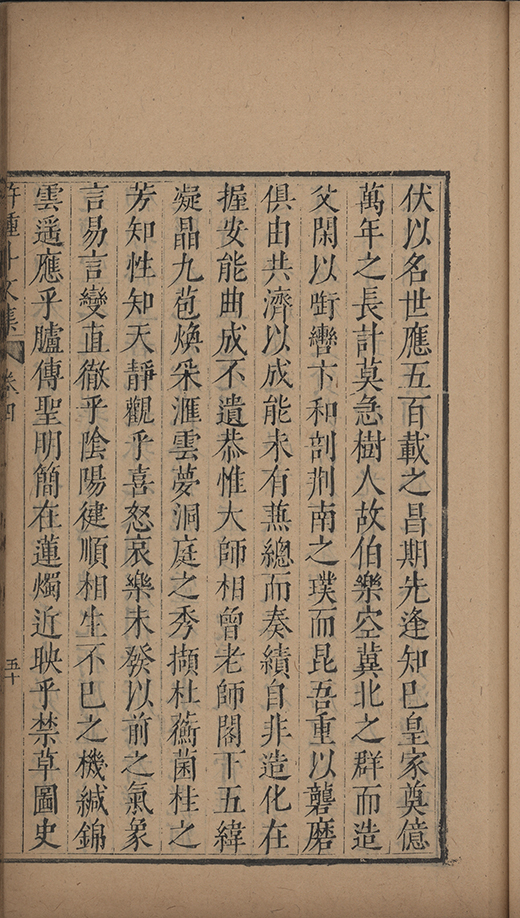 伏以名世應五百載之昌期先逢知巳皇家奠億
萬年之長計莫急樹人故伯樂空冀北之群而造
父閑以啣轡卞和剖荆南之璞而昆吾重以礲磨
俱由共濟以成能未有焘總而奏績自非造化在
握安能曲成不遺恭惟大師相曾老師閣下五緯
凝晶九苞煥采滙雲夢洞庭之秀擷杜蘅菌桂之
芳知性知天靜觀乎喜怒哀樂未發以前之氣象
言易言變直徹乎陰陽健順相生不巳之機緘錦
雲遥應乎臚傳聖明簡在蓮燭近映乎禁草圖史
卷四
五十